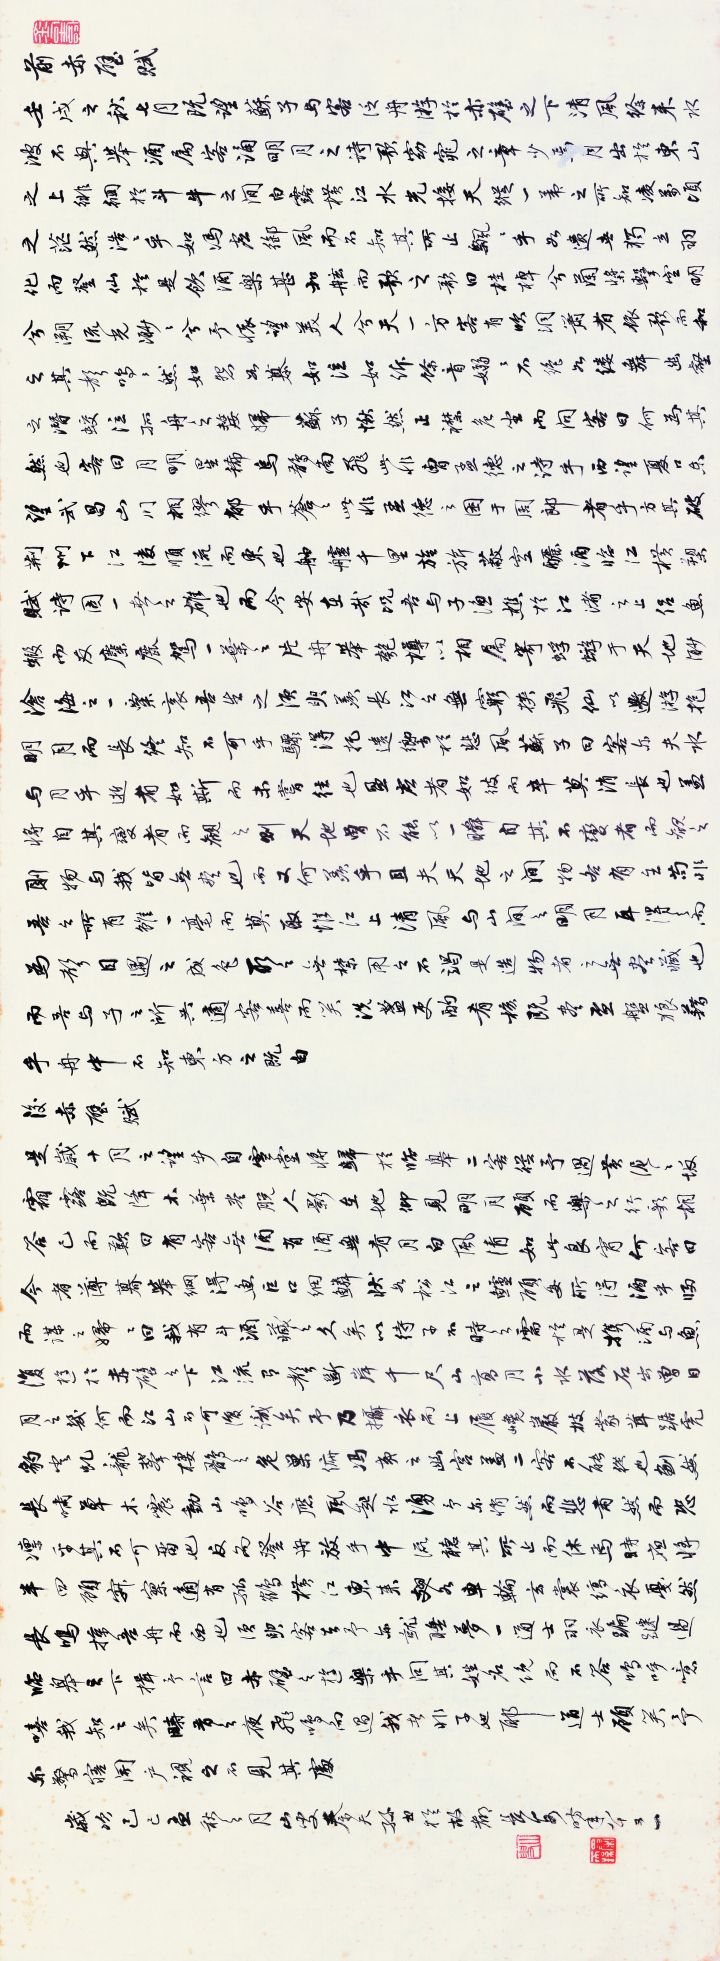 前赤壁賦
壬戌之秋七月既望蘇子与客泛舟游於赤壁之下清風徐來水
波不興舉酒屬客誦明月之詩歌窈窕之章少焉月出於東山
之上徘徊於斗牛之間白露橫江水光接天縱一葦之所如凌萬頃
之茫然浩浩乎如馮虛御風而不知其所止飄飄乎如遺世獨立羽
化而登仙於是飲酒樂甚扣舷而歌之歌曰桂棹兮蘭槳擊空明
兮溯流光渺渺兮予懷望美人兮天一方客有吹洞簫者依歌而和
之其聲嗚嗚然如怨如慕如泣如訴餘音嫋嫋不絕如縷舞幽壑
之潛蛟泣孤舟之嫠婦蘇子愀然正襟危坐而問客曰何為其
然也客曰月明星稀烏鵲南飛此非曹孟德之詩乎西望夏口東
望武昌山川相繆鬱乎蒼蒼此非孟德之困于周郎者乎方其破
荊州下江陵順流而東也舳艫千里旌旂蔽空釃酒臨江橫槊
賦詩固一世之雄也而今安在哉況吾与子漁樵於江渚之上侶魚
蝦而友麋鹿駕一葉之片舟舉匏樽以相屬寄蜉蝣于天地渺
滄海之一粟哀吾生之須臾羨長江之無窮挾飛仙以遨游抱
明月而長終知不可乎驟得托遺響於悲風蘇子曰客亦夫水
与月乎逝者如斯而未嘗往也盈虛者如彼而卒莫消長也蓋
將自其變者而觀之則天地曾不能以一瞬自其不變者而觀之
則物与我皆無盡也而又何羨乎且夫天地之間物各有主苟非
吾之所有雖一毫而莫取惟江上清風与山間之明月耳得之而
為聲目遇之成色取之無禁用之不竭是造物者之無盡藏也
而吾与子之所共適客喜而笑洗盞更酌肴核既盡杯盤狼藉
乎舟中不知東方之既白
後赤壁賦
是歲十月之望步自雪堂將歸於臨皋二客從予過黃泥之坂
霜露既降木葉盡脫人影在地仰見明月顧而樂之行歌相
答已而歎曰有客無酒有酒無肴月白風清如此良宵何客曰
今者薄暮舉網得魚巨口細鱗狀如松江之鱸顧安所得酒乎歸
而謀之婦婦曰我有斗酒藏之久矣以待子不時之需於是攜酒与魚
復遊於赤壁之下江流有聲斷岸千尺山高月小水落石出曾日
月之幾何而江山不可復識矣予乃攝衣而上履巉巖披蒙茸踞虎
豹登虬龍攀棲鶻之危巢俯馮夷之幽宮蓋二客不能從也劃然
長嘯草木震動山鳴谷應風起水湧予亦悄然而悲肅然而恐
凜乎其不可留也反而登舟放乎中流聽其所止而休焉時夜將
半四顧寂寥適有孤鶴橫江東來翅如車輪玄裳縞衣戛然
長鳴掠吾舟而西也須臾客去予亦就睡夢一道士羽衣蹁躚過
臨皋之下揖予言曰赤壁之遊樂乎問其姓名俛而不答嗚呼噫
嘻我知之矣疇昔之夜飛鳴而過我者非子也耶道士顧笑予
亦驚寤開户視之不見其處
歲次己巳孟秋之月